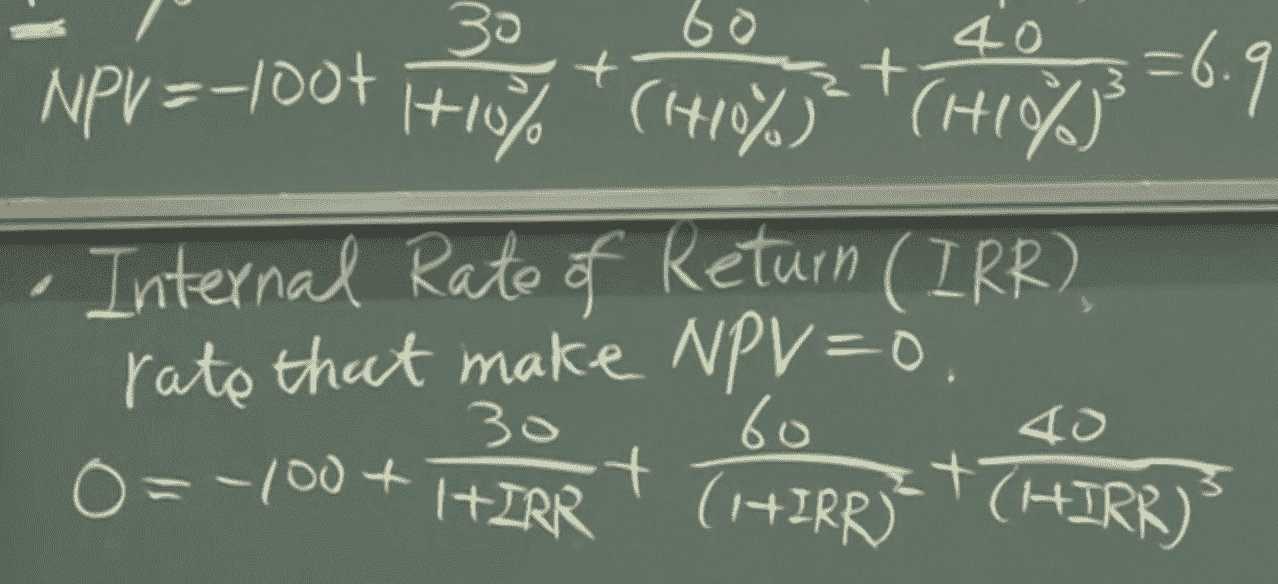 NPV = -100 + 30/(1+10%) + 60/(1+10%)^2 + 40/(1+10%)^3 = 6.9
• Internal Rate of Return (IRR),
rate that make NPV = 0.
0 = -100 + 30/(1+IRR) + 60/(1+IRR)^2 + 40/(1+IRR)^3